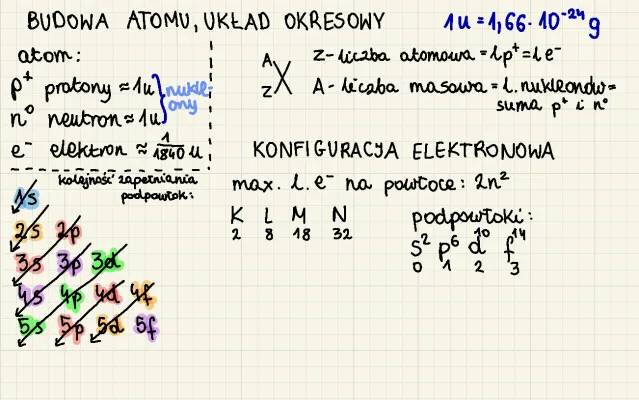 BUDOWA ATOMU, UKŁAD OKRESOWY
1u = 1,66 · 10⁻²⁴ g
atom:
p⁺ protony ≈ 1u
n⁰ neutron ≈ 1u
nukle-
ony
e⁻ elektron ≈ 1/1840 u
A
Z X
Z - liczba atomowa = l p⁺ = l e⁻
A - liczba masowa = l. nukleonów =
suma p⁺ i n⁰
kolejność zapełniania
podpowłok:
1s
2s 2p
3s 3p 3d
4s 4p 4d 4f
5s 5p 5d 5f
KONFIGURACJA ELEKTRONOWA
max. l. e⁻ na powłoce: 2n²
K L M N
2 8 18 32
podpowłoki:
s² p⁶ d¹⁰ f¹⁴
0 1 2 3